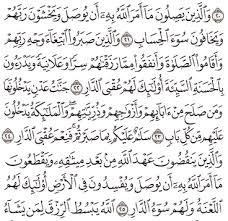 ﴿٢٠﴾ وَالَّذِينَ يَصِلُونَ مَا أَمَرَ اللَّهُ بِهِ أَن يُوصَلَ وَيَخْشَوْنَ رَبَّهُمْ
وَيَخَافُونَ سُوءَ الْحِسَابِ ﴿٢١﴾ وَالَّذِينَ صَبَرُوا ابْتِغَاءَ وَجْهِ رَبِّهِمْ
وَأَقَامُوا الصَّلَاةَ وَأَنفَقُوا مِمَّا رَزَقْنَاهُمْ سِرًّا وَعَلَانِيَةً وَيَدْرَءُونَ
بِالْحَسَنَةِ السَّيِّئَةَ أُولَٰئِكَ لَهُمْ عُقْبَى الدَّارِ ﴿٢٢﴾ جَنَّاتُ عَدْنٍ يَدْخُلُونَهَا
وَمَن صَلَحَ مِنْ آبَائِهِمْ وَأَزْوَاجِهِمْ وَذُرِّيَّاتِهِمْ وَالْمَلَائِكَةُ يَدْخُلُونَ
عَلَيْهِم مِّن كُلِّ بَابٍ ﴿٢٣﴾ سَلَامٌ عَلَيْكُم بِمَا صَبَرْتُمْ فَنِعْمَ عُقْبَى الدَّارِ ﴿٢٤﴾
وَالَّذِينَ يَنقُضُونَ عَهْدَ اللَّهِ مِن بَعْدِ مِيثَاقِهِ وَيَقْطَعُونَ
مَا أَمَرَ اللَّهُ بِهِ أَن يُوصَلَ وَيُفْسِدُونَ فِي الْأَرْضِ أُولَٰئِكَ لَهُمُ
اللَّعْنَةُ وَلَهُمْ سُوءُ الدَّارِ ﴿٢٥﴾ اللَّهُ يَبْسُطُ الرِّزْقَ لِمَن يَشَاءُ